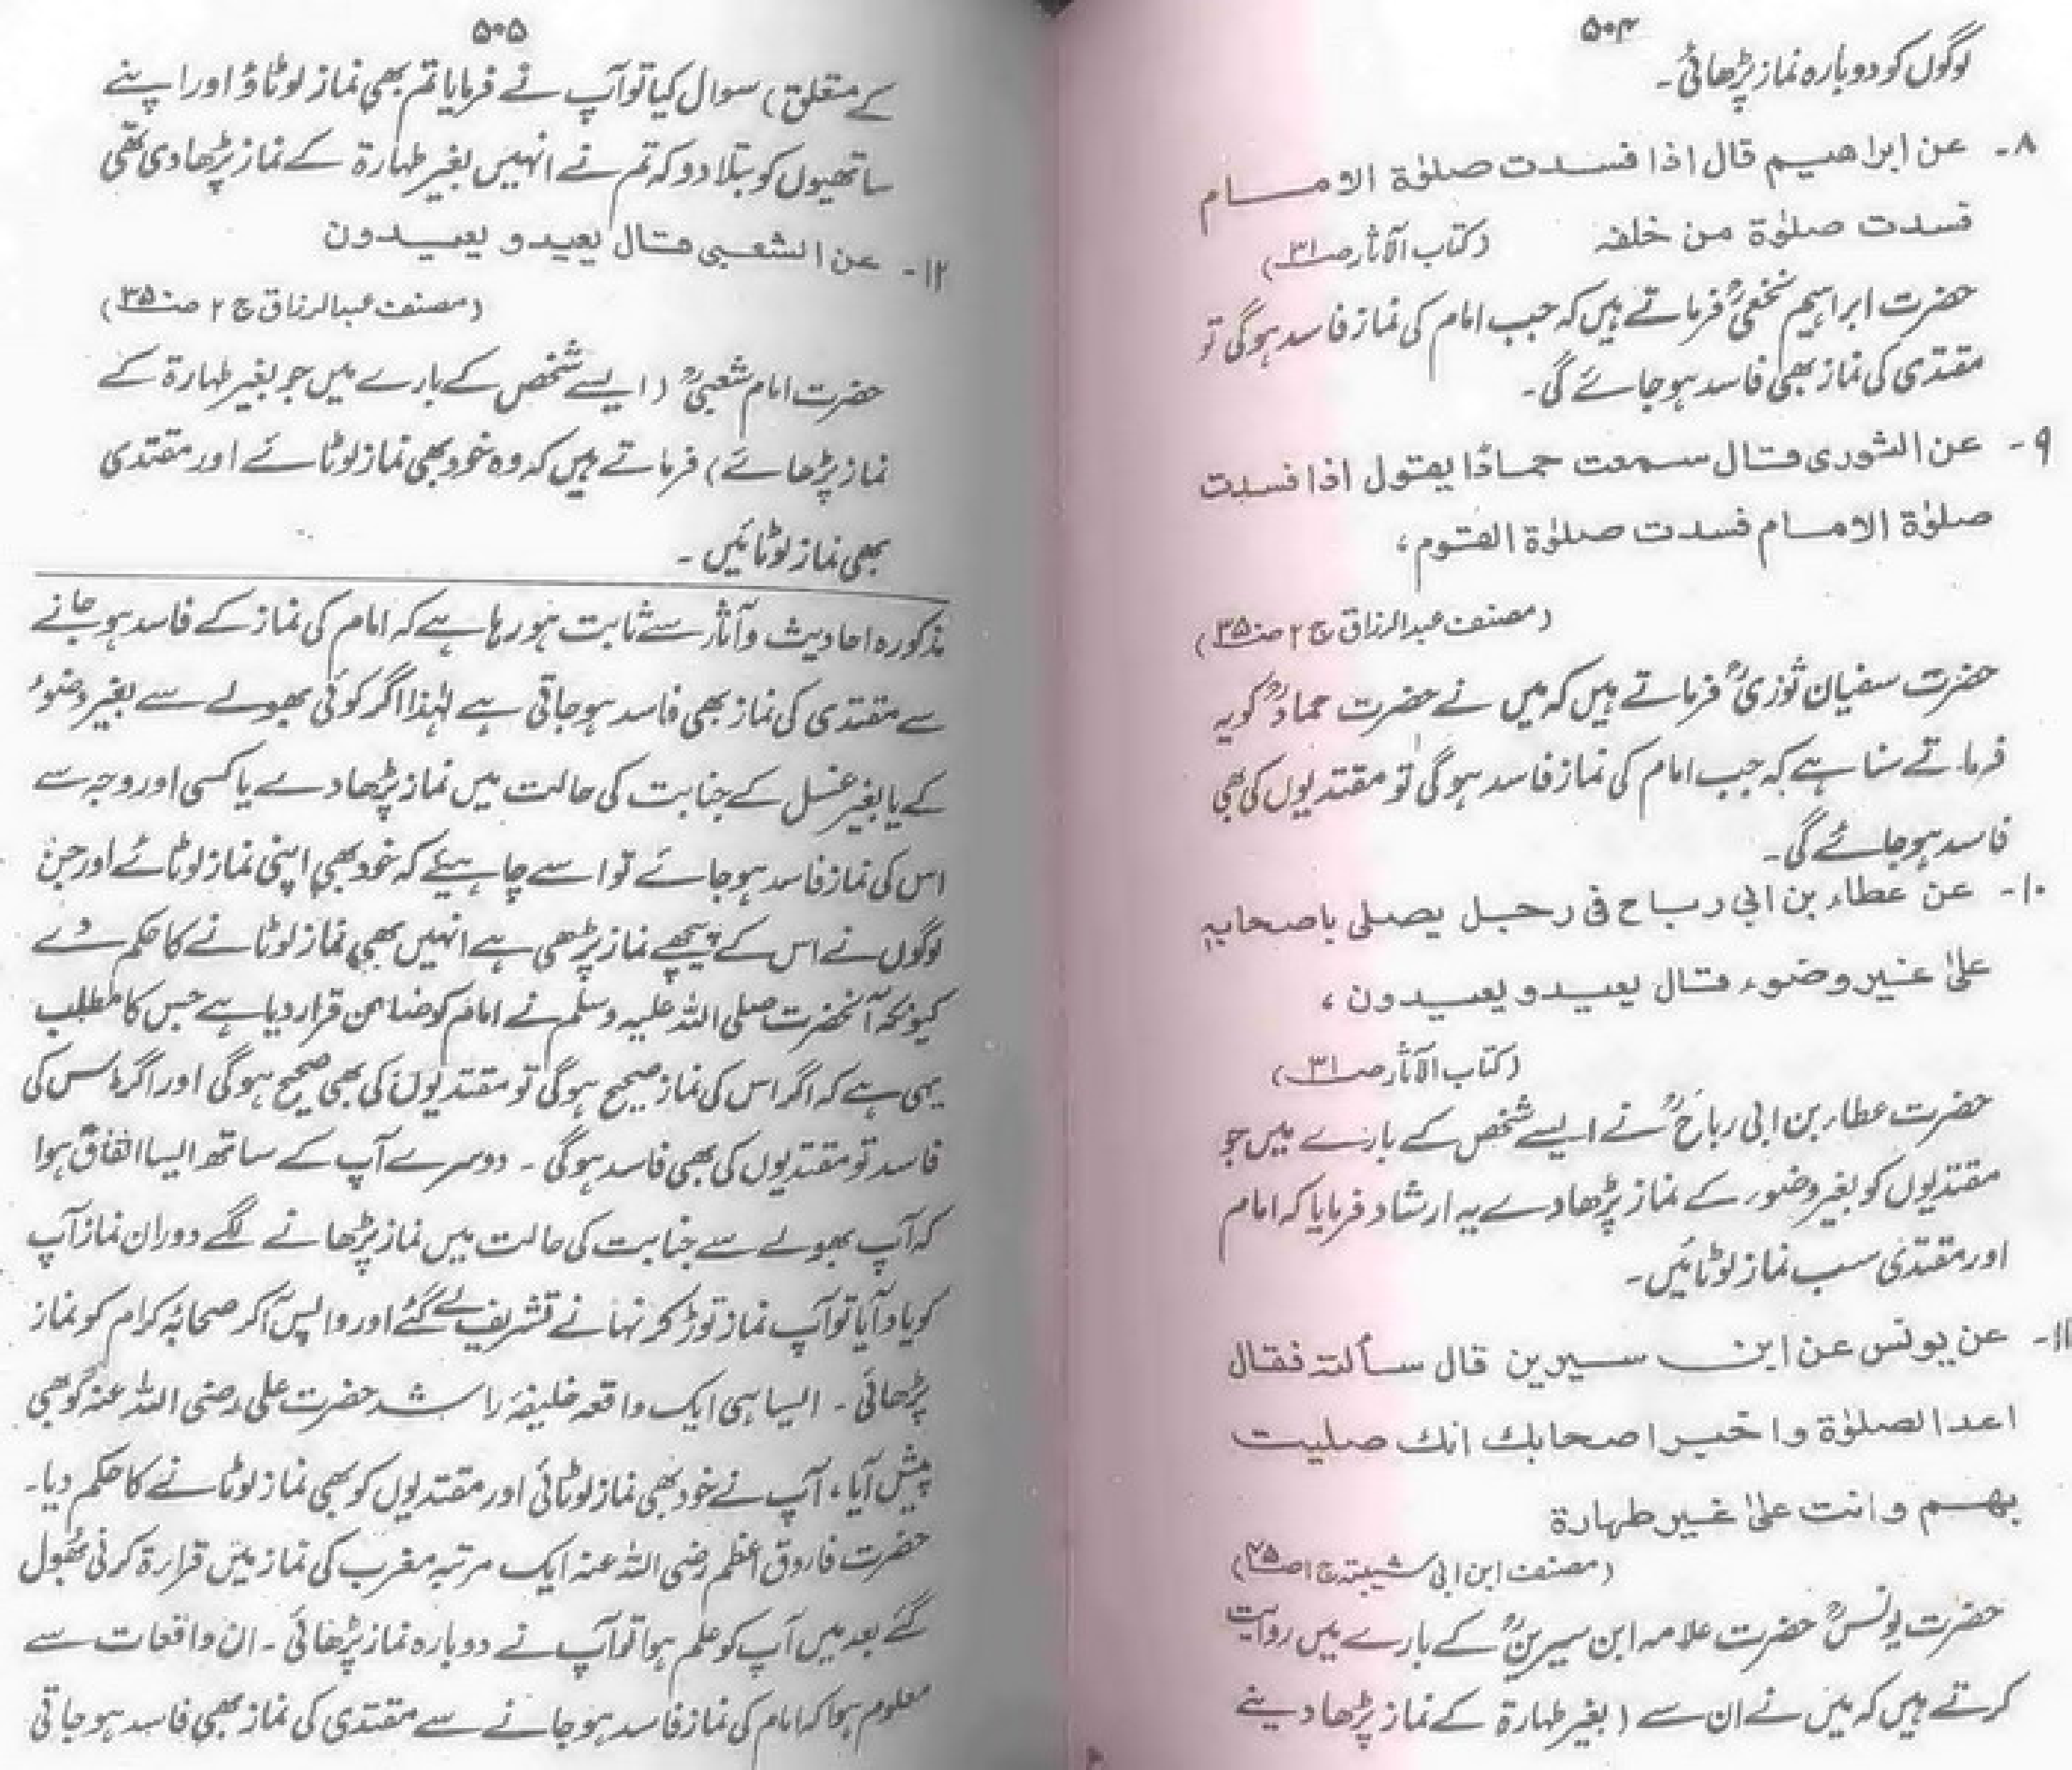 ۵۰۴
لوگوں کو دوبارہ نماز پڑھائی۔
۸۔ عن ابراھیم قال اذا فسدت صلوٰۃ الامام
فسدت صلوٰۃ من خلفہ (کتاب الآثار ص۳۱)
حضرت ابراہیم نخعیؒ فرماتے ہیں کہ جب امام کی نماز فاسد ہوگی تو
مقتدی کی نماز بھی فاسد ہو جائے گی۔
۹۔ عن الثوری قال سمعت حمادًا یقول اذا فسدت
صلوٰۃ الامام فسدت صلوٰۃ القوم،
(مصنف عبدالرزاق ج۲ ص۳۵۰)
حضرت سفیان ثوریؒ فرماتے ہیں کہ میں نے حضرت حمادؒ کو یہ
فرماتے سنا ہے کہ جب امام کی نماز فاسد ہوگی تو مقتدیوں کی بھی
فاسد ہو جائے گی۔
۱۰۔ عن عطاء بن ابی رباح فی رجل یصلی باصحابہٖ
علیٰ غیر وضوء قال یعید و یعیدون،
(کتاب الآثار ص۳۱)
حضرت عطاء بن ابی رباحؒ نے ایسے شخص کے بارے میں جو
مقتدیوں کو بغیر وضوء کے نماز پڑھادے یہ ارشاد فرمایا کہ امام
اور مقتدی سب نماز لوٹائیں۔
۱۱۔ عن یونس عن ابن سیرین قال سألتہ فقال
اعد الصلوٰۃ واخبر اصحابک انک صلیت
بھم وانت علیٰ غیر طہارۃ
(مصنف ابن ابی شیبۃ ج۱ ص۴۵)
حضرت یونسؒ حضرت علامہ ابن سیرینؒ کے بارے میں روایت
کرتے ہیں کہ میں نے ان سے (بغیر طہارۃ کے نماز پڑھا دینے
۵۰۵
کے متعلق) سوال کیا تو آپ نے فرمایا تم بھی نماز لوٹاؤ اور اپنے
ساتھیوں کو بتلا دو کہ تم نے انہیں بغیر طہارۃ کے نماز پڑھا دی تھی
۱۲۔ عن الشعبی قال یعید و یعیدون
(مصنف عبدالرزاق ج ۲ ص۳۵۰)
حضرت امام شعبیؒ (ایسے شخص کے بارے میں جو بغیر طہارۃ کے
نماز پڑھائے) فرماتے ہیں کہ وہ خود بھی نماز لوٹائے اور مقتدی
بھی نماز لوٹائیں۔
مذکورہ احادیث و آثار سے ثابت ہو رہا ہے کہ امام کی نماز کے فاسد ہو جانے
سے مقتدی کی نماز بھی فاسد ہو جاتی ہے لہٰذا اگر کوئی بھولے سے بغیر وضوء
کے یا بغیر غسل کے جنابت کی حالت میں نماز پڑھا دے یا کسی اور وجہ سے
اس کی نماز فاسد ہو جائے تو اسے چاہیئے کہ خود بھی اپنی نماز لوٹائے اور جن
لوگوں نے اس کے پیچھے نماز پڑھی ہے انہیں بھی نماز لوٹانے کا حکم دے
کیونکہ آنحضرت صلی اللہ علیہ وسلم نے امام کو ضامن قرار دیا ہے جس کا مطلب
یہی ہے کہ اگر اس کی نماز صحیح ہوگی تو مقتدیوں کی بھی صحیح ہوگی اور اگر اس کی
فاسد تو مقتدیوں کی بھی فاسد ہوگی۔ دوسرے آپ کے ساتھ ایسا اتفاق ہوا
کہ آپ بھولے سے جنابت کی حالت میں نماز پڑھانے لگے دوران نماز آپ
کو یاد آیا تو آپ نماز توڑ کر نہانے تشریف لے گئے اور واپس آکر صحابہ کرام کو نماز
پڑھائی۔ ایسا ہی ایک واقعہ خلیفہ راشد حضرت علی رضی اللہ عنہ کو بھی
پیش آیا، آپ نے خود بھی نماز لوٹائی اور مقتدیوں کو بھی نماز لوٹانے کا حکم دیا۔
حضرت فاروق اعظم رضی اللہ عنہ ایک مرتبہ مغرب کی نماز میں قراءۃ کرنی بھول
گئے بعد میں آپ کو علم ہوا تو آپ نے دوبارہ نماز پڑھائی۔ ان واقعات سے
معلوم ہوا کہ امام کی نماز فاسد ہو جانے سے مقتدی کی نماز بھی فاسد ہو جاتی